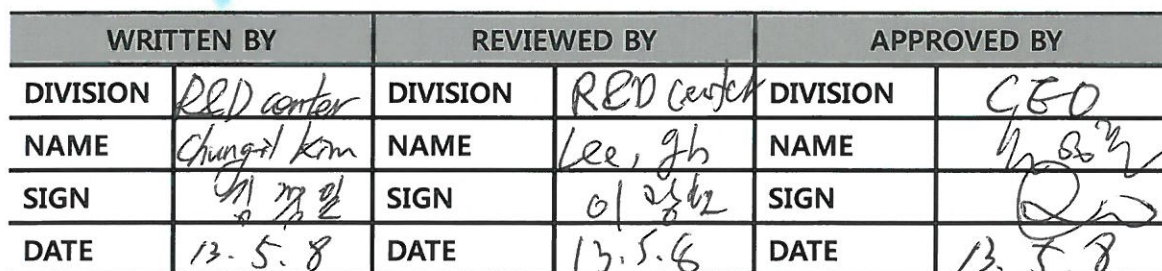 WRITTEN BY REVIEWED BY APPROVED BY
DIVISION R&D center DIVISION R&D center DIVISION CEO
NAME Chungil Kim NAME Lee, gh NAME
SIGN SIGN SIGN
DATE 13. 5. 8 DATE 13. 5. 8 DATE 13. 5. 8